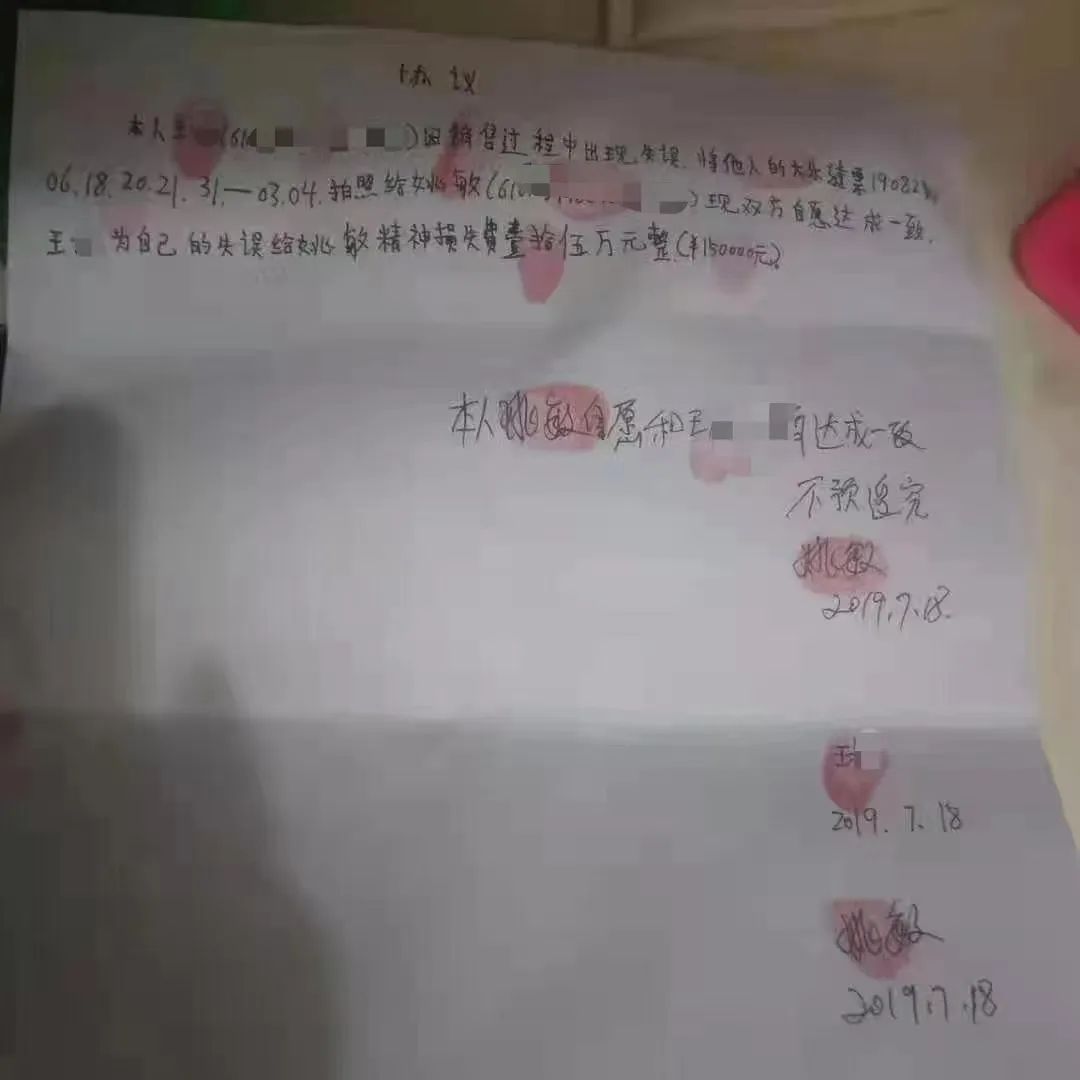 协议
本人王(61)因销售过程中出现失误.将他人的大乐透票19082期.
06.18.20.21.31.—03.04.拍照给姚敏(61)现双方自愿达成一致.
王 为自己的失误给姚敏精神损失费壹拾伍万元整(¥150000元).
本人姚敏自愿和王 达成一致
不预追究
姚敏
2019.7.18.
王
2019.7.18
姚敏
2019.7.18